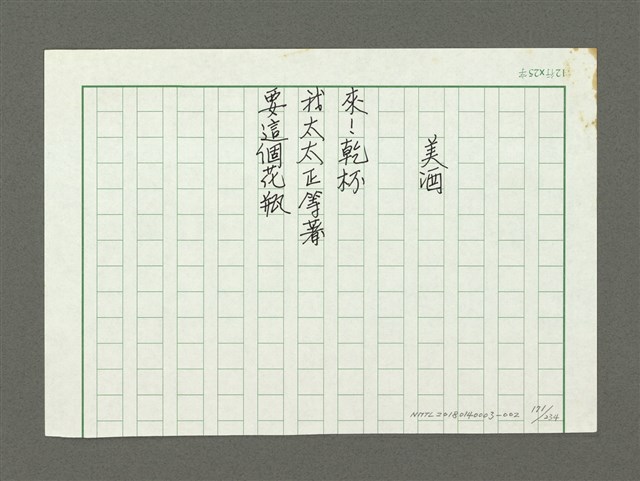 12行X25字
美酒
來!乾杯
我太太正等著
要這個花瓶
NMTL20180140003-002
171/234